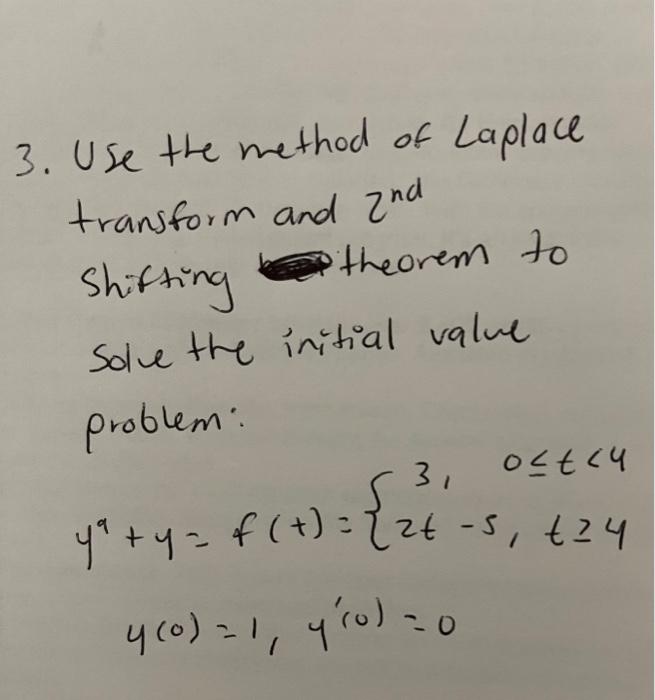 3. Use the method of Laplace
transform and 2nd
Shifting theorem to
Solve the initial value
problem:
y" + y = f(t) = { 3, 0 ≤ t < 4
2t - 5, t ≥ 4
y(0) = 1, y'(0) = 0